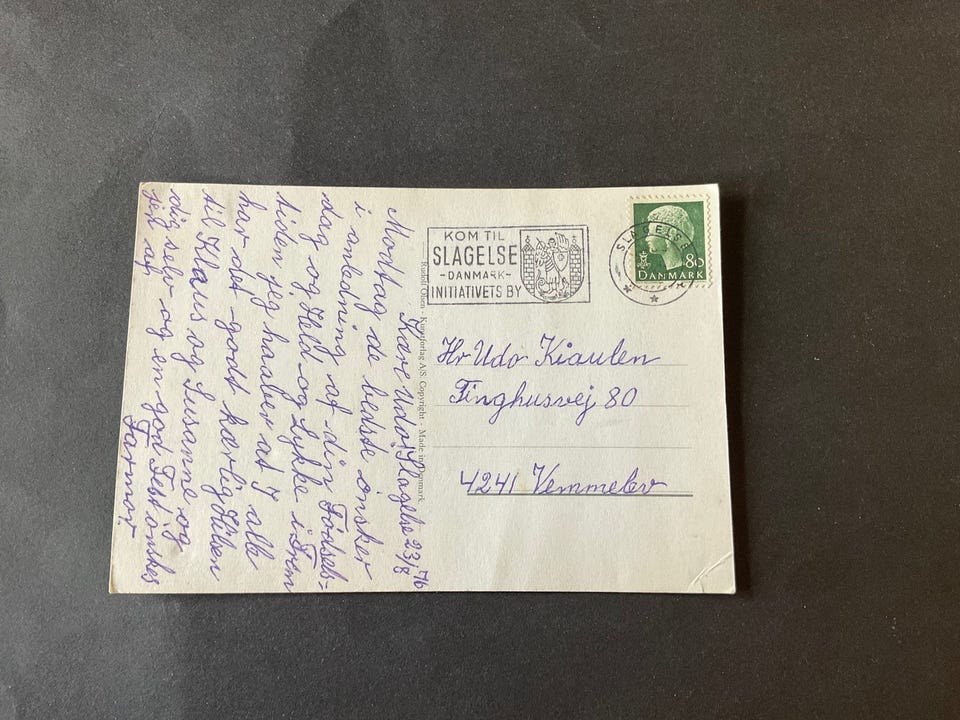 KOM TIL
SLAGELSE
-DANMARK-
INITIATIVETS BY
SLAGELSE
80
DANMARK
Rudolf Olsen - Kunstforlag A/S. Copyright - Made in Denmark
Hr Udo Kiaulen
Tinghusvej 80
4241 Vemmelev
Slagelse 23/8 76
Kære Udo!
Modtag de bedste ønsker
i anledning af din Fødsels-
dag og Held og Lykke i Frem
tiden jeg haaber at I alle
har det godt kærlig Hilsen
til Klaus og Susanne og
dig selv og en god Fest ønskes
jer af
Farmor